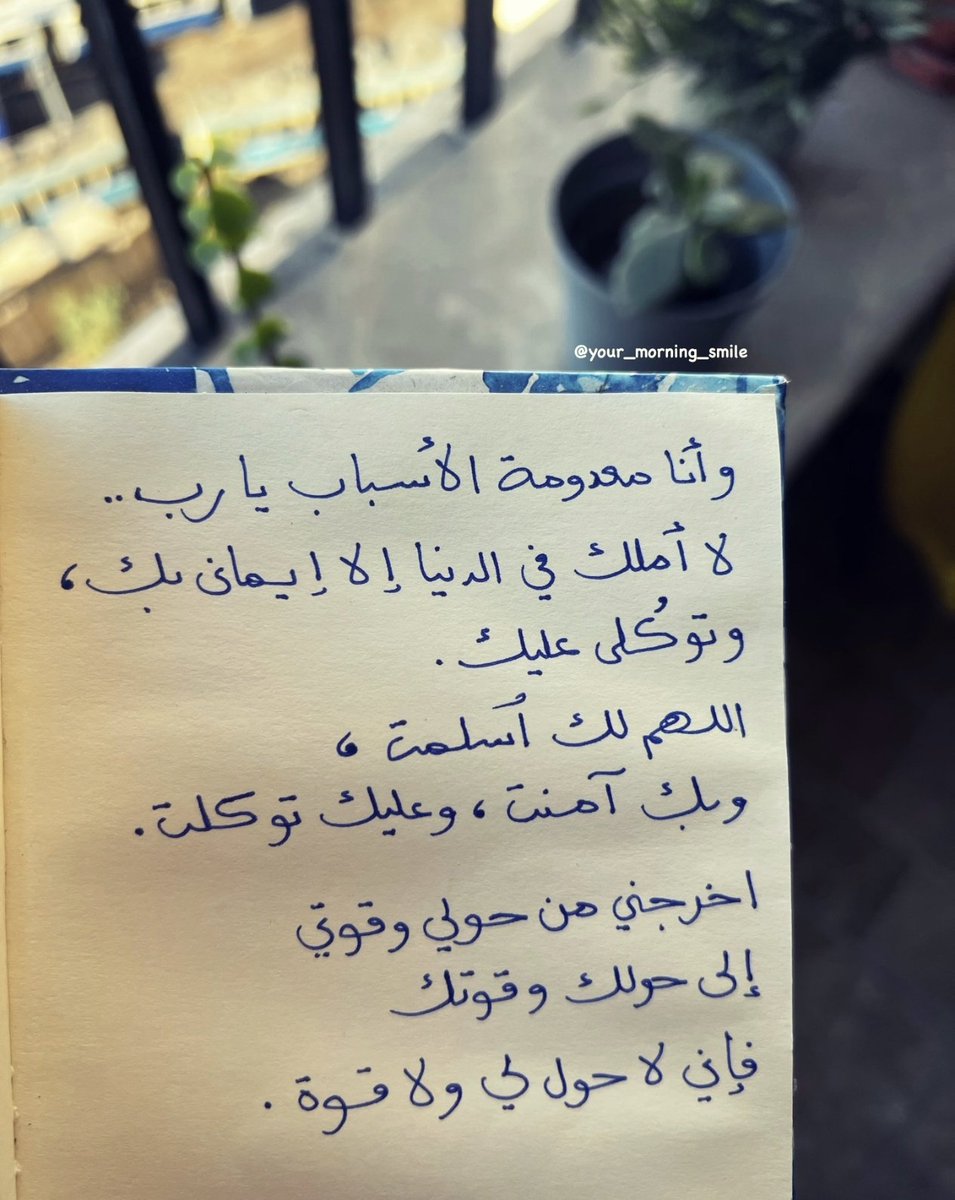 @your_morning_smile
وأنا معدومة الأسباب يارب..
لا أملك في الدنيا إلا إيماني بك،
وتوكُلي عليك.
اللهم لك أسلمت ،
وبك آمنت ، وعليك توكلت.
اخرجني من حولي وقوتي
إلى حولك وقوتك
فإني لا حول لي ولا قوة .